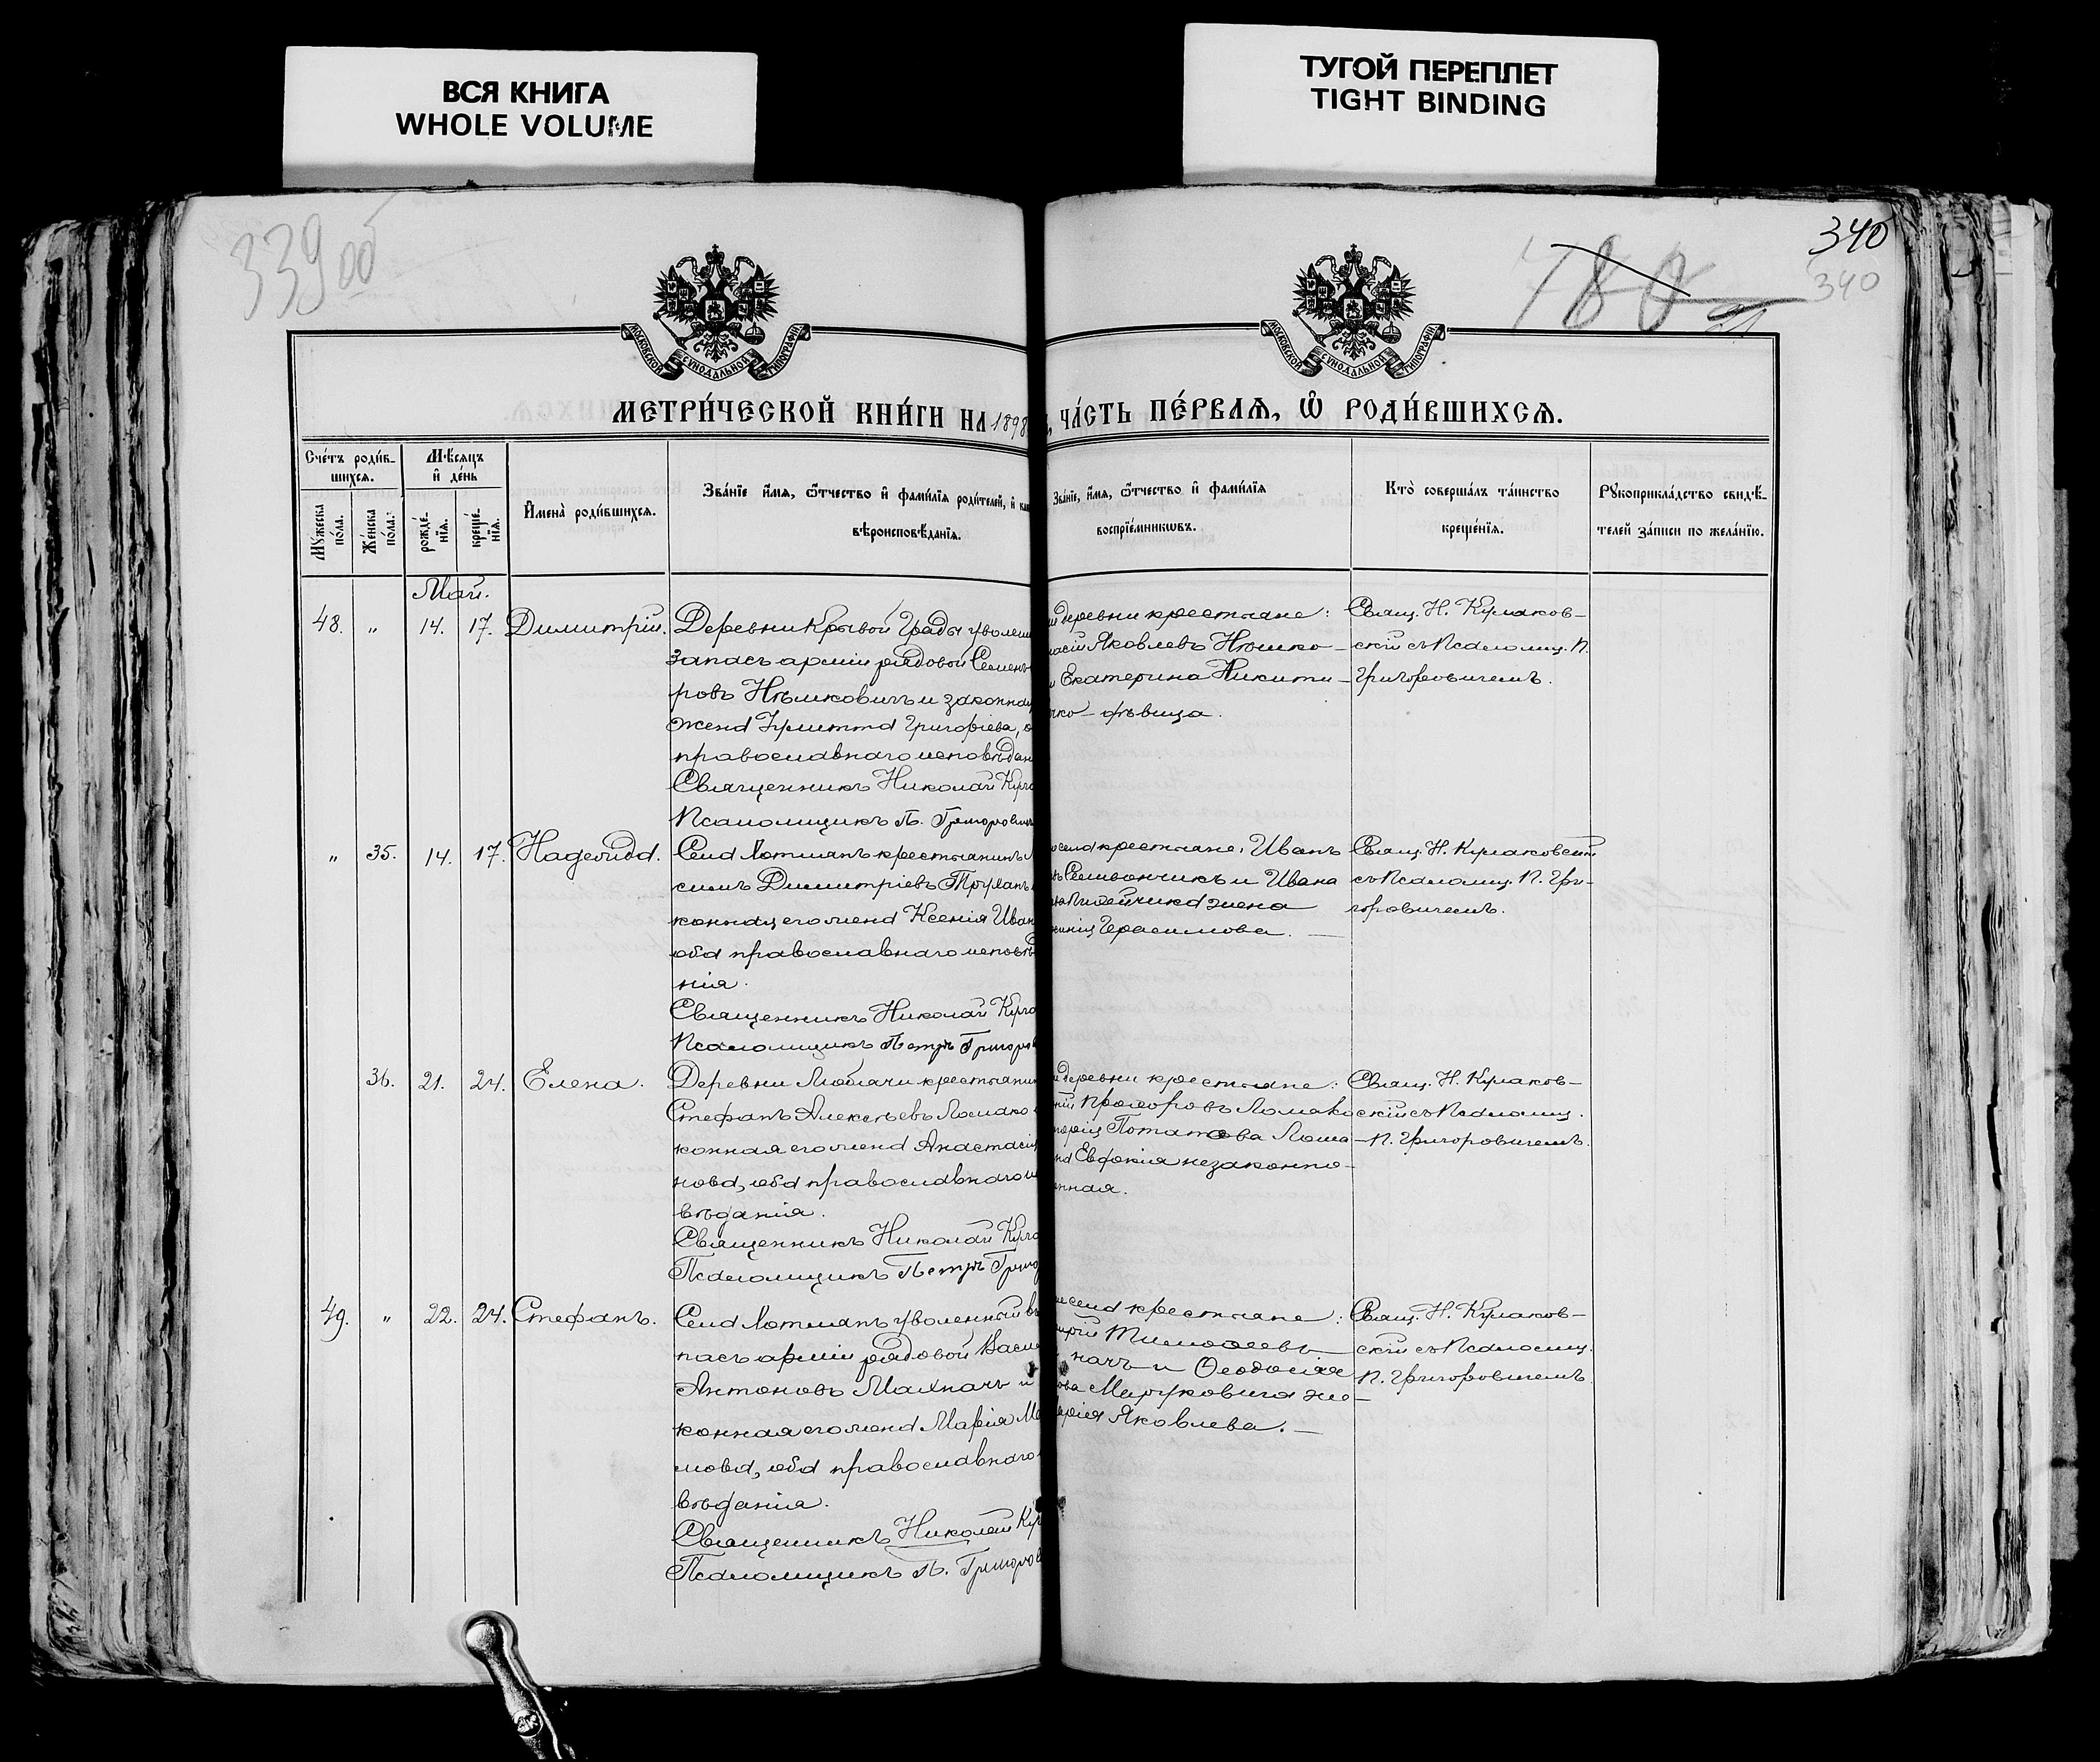 ВСЯ КНИГА
WHOLE VOLUME
ТУГОЙ ПЕРЕПЛЕТ
TIGHT BINDING
339 об
340
340
780
МОСКОВСКОЙ СѴНОДАЛЬНОЙ ТИПОГРАФІИ
МОСКОВСКОЙ СѴНОДАЛЬНОЙ ТИПОГРАФІИ
МЕТРИ́ЧЕСКОЙ КНИ́ГИ НА 1898
ЧА́СТЬ ПЕ́РВАѦ, Ѽ РОДИ́ВШИХСѦ.
Сче́тъ роди́в-
шихсѧ.
Мѣ́сѧцъ
и҆ де́нь
Мꙋ́жеска по́ла.
Же́нска по́ла.
рожде́-нїѧ.
креще́-нїѧ.
И҆мена̀ роди́вшихсѧ.
Зва́нїе и҆́мѧ, ѻ҆́тчество и҆ фами́лїѧ роди́телей, и҆
вѣроисповѣ́данїѧ.
Зва́нїе, и҆́мѧ, ѻ҆́тчество и҆ фами́лїѧ
воспрїе́мникѡвъ.
Кто̀ соверша́лъ та́инство
креще́нїѧ.
Рꙋкоприкла́дство свидѣ́-
телей за́писи по жела́нїю.
Май.
48. „ 14. 17. Димитрій.
Деревни Кривой Гряды уволен
запасъ арміи рядовой Семенъ
ровъ Нѣмковичъ и законная
жена Григоріева,
православнаго исповѣдан
Священникъ Николай
Псаломщикъ П. Григорович
деревни крестьяне:
Яковлевъ Нюшко-
Екатерина Никити-
чко- дѣвица.
Свящ. Н. Кулаков-
скій съ Псаломщ. П.
Григоровичемъ.
„ 35. 14. 17. Надежда.
Села Хотлянъ крестьянинъ
симъ Димитріевъ
конная его жена Ксенія Иван
оба православнаго исповѣ
нія.
Священникъ Николай
Псаломщикъ Петръ Григоров
села крестьяне, Иванъ
Селивончикъ и Ивана
жена
Герасимова.
Свящ. Н. Кулаковскій
съ Псаломщ. П. Гри-
горовичемъ.
36. 21. 24. Елена.
Деревни Любачи крестьянин
Стефанъ Алексѣевъ Ломако
конная его жена Анастасія
нова, оба православнаго и
вѣданія.
Священникъ Николай
Псаломщикъ Петръ Григо
деревни крестьяне:
Прохоровъ Ломако
Потапова Лома
Евдокія незаконно-
нная.
Свящ. Н. Кулаков-
скій съ Псаломщ.
П. Григоровичемъ.
49. „ 22. 24. Стефанъ.
Села Хотлянъ уволенный въ
пасъ арміи рядовой Васил
Антоновъ Махначъ и
конная его жена Марія Ма
мова, оба православнаго
вѣданія.
Священникъ Николай
Псаломщикъ П. Григоров
села крестьяне:
Тимоѳеевъ
начъ и Ѳеодосія
Маруковича же-
Яковлева.
Свящ. Н. Кулаков-
скій съ Псаломщ.
П. Григоровичемъ.